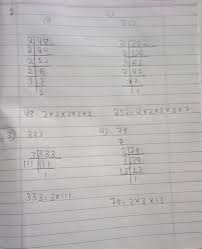 2)
48
252
2|48
2|24
2|12
2|6
3|3
1
2|252
2|126
3|63
3|21
1
48 = 2×2×2×2×3
252 = 2×2×3×3×7
3) 333
4) 78
3|333
111|111
1
2|78
3|39
13|13
1
333 = 3×111
78 = 2×3×13